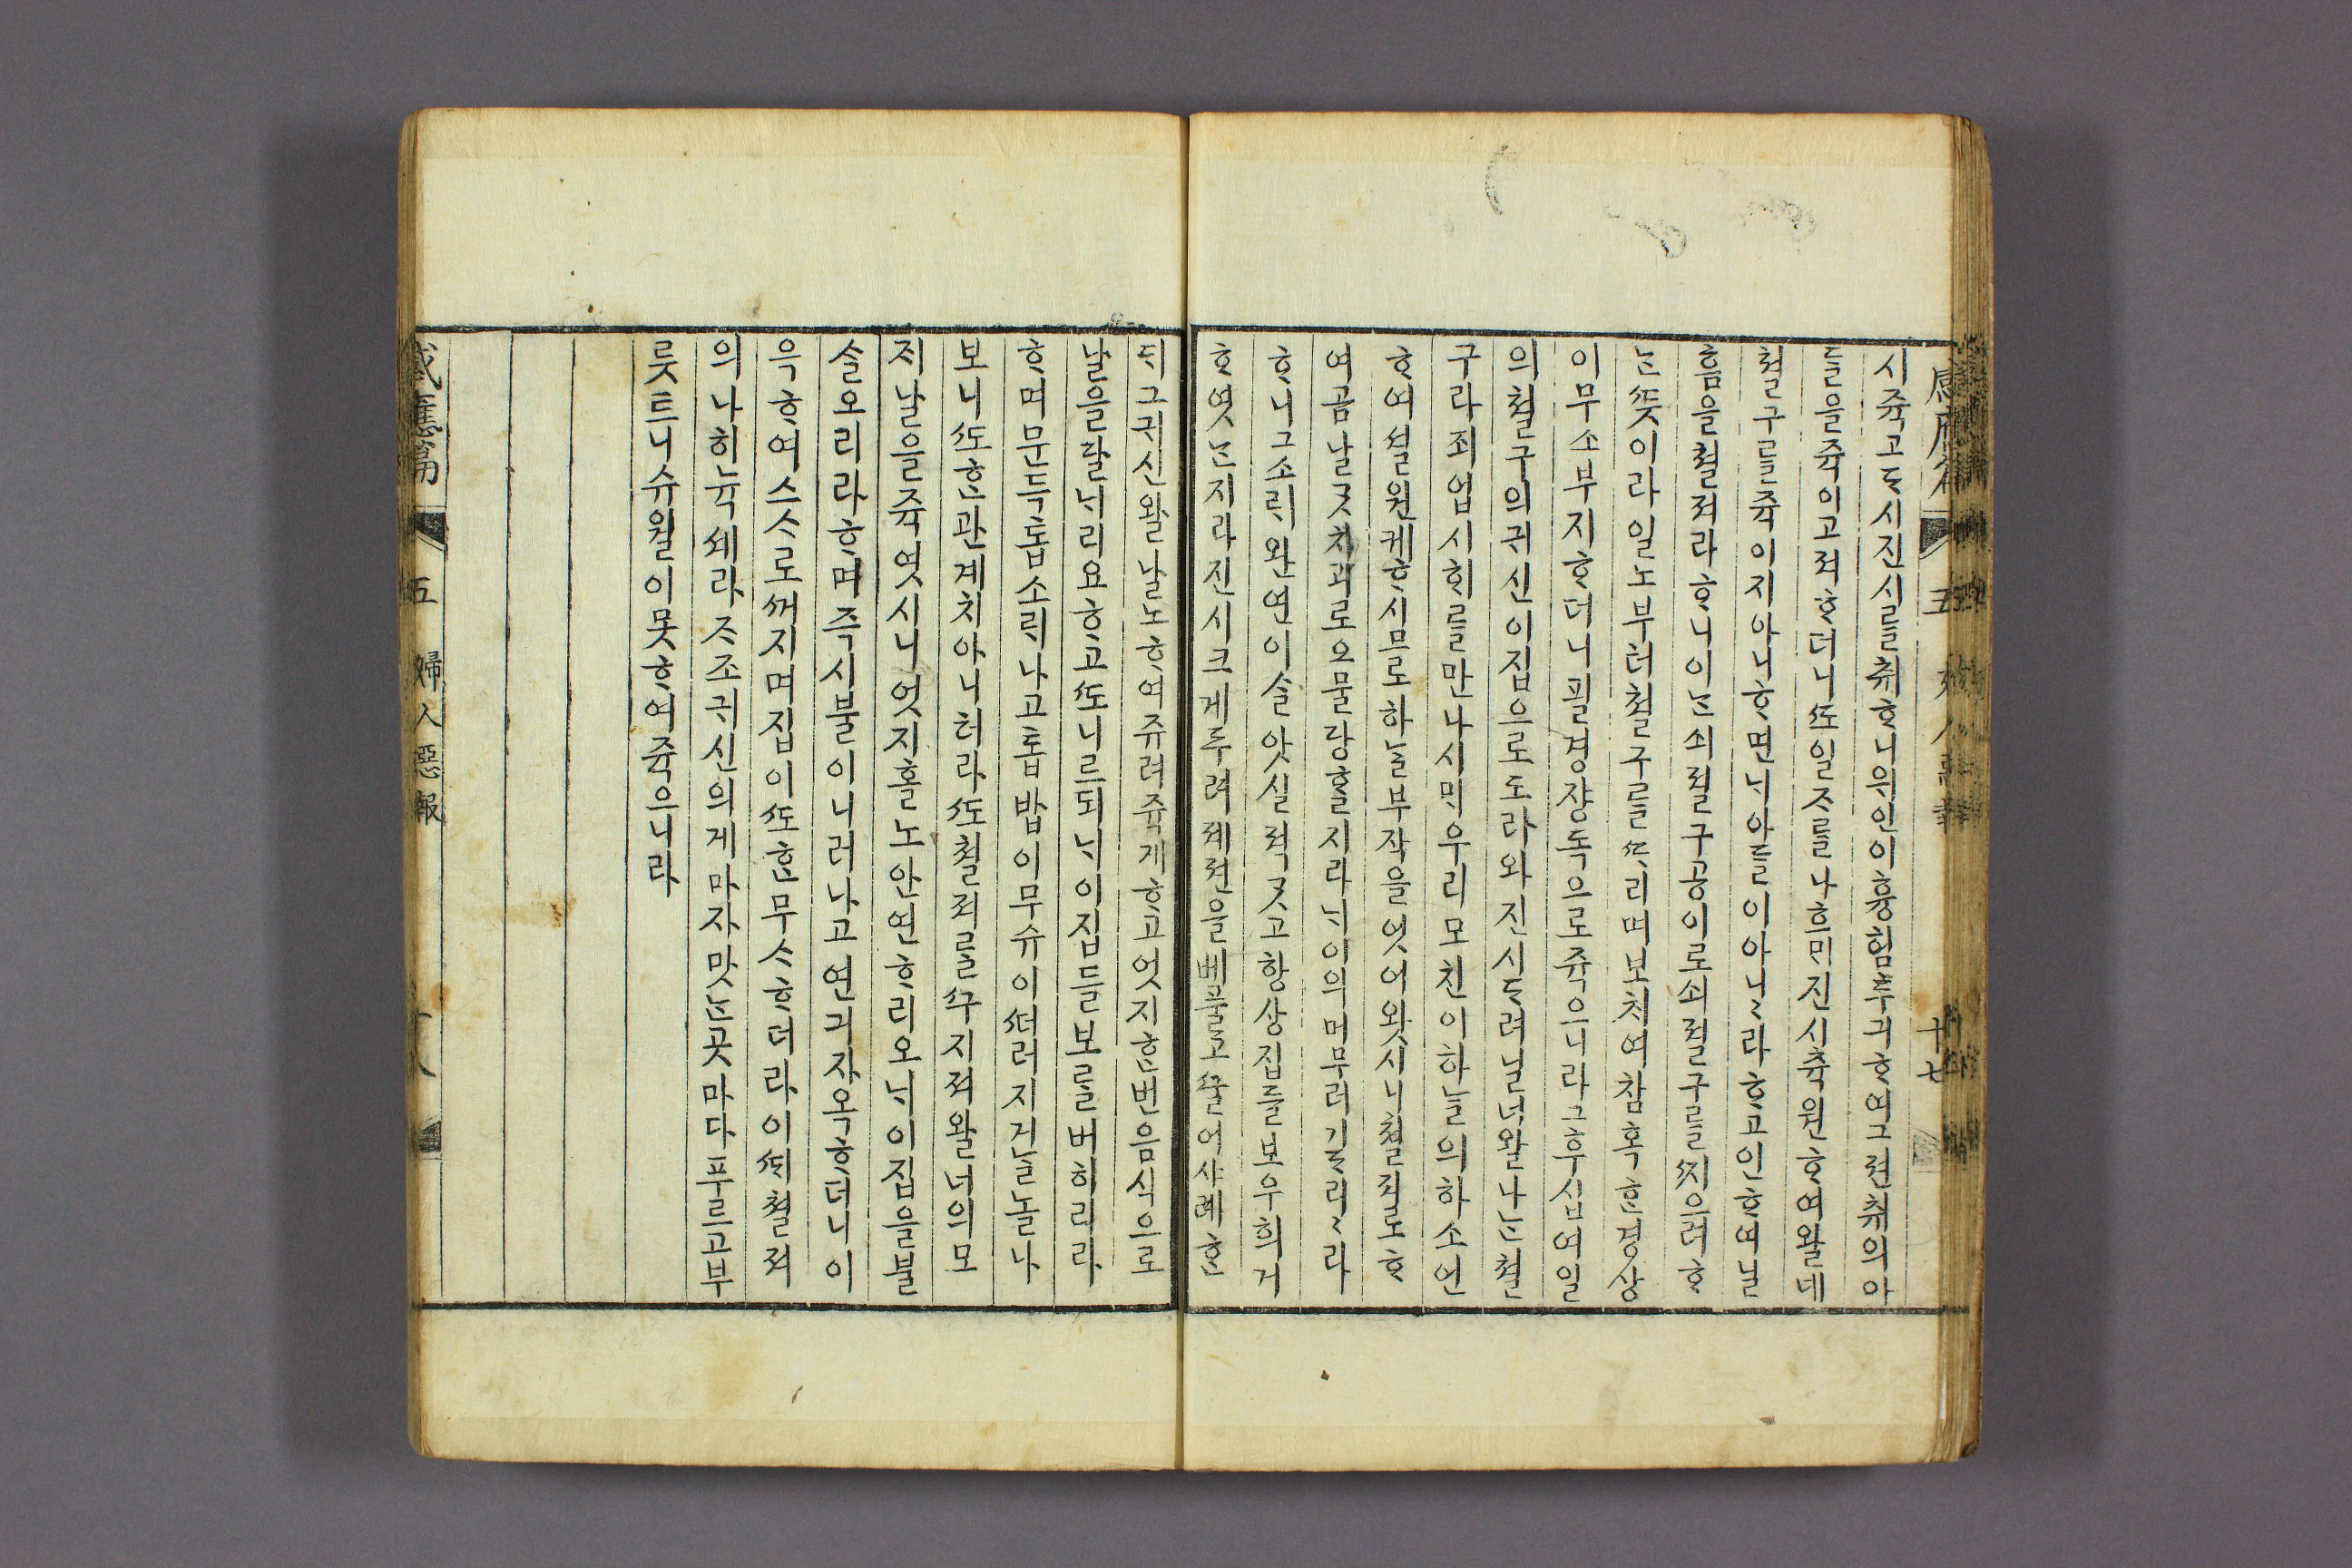 시쥭고ᄯᅩ시진시ᄅᆞᆯ취ᄒᆞ니위인이흉험투긔ᄒᆞ여그젼취의아
들을쥭이고져ᄒᆞ더니ᄯᅩ일ᄌᆞᄅᆞᆯ나흐ᄆᆡ진시츅원ᄒᆞ여왈네
쳘구ᄅᆞᆯ쥭이지아니ᄒᆞ면ᄂᆡ아ᄃᆞᆯ이아니〻라ᄒᆞ고인ᄒᆞ여닐
흠을쳘져라ᄒᆞ니이ᄂᆞᆫ쇠졀구공이로쇠졀구ᄅᆞᆯᄶᅵ으려ᄒᆞ
ᄂᆞᆫᄯᅳᆺ이라일노부터쳘구ᄅᆞᆯᄯᆞ리며보ᄎᆡ여참혹ᄒᆞᆫ경상
이무소부지ᄒᆞ더니필경쟝독으로쥭으니라그후십여일
의쳘구의귀신이집으로도라와진시ᄃᆞ려닐너왈나ᄂᆞᆫ쳘
구라죄업시ᄒᆡᄅᆞᆯ만나시ᄆᆡ우리모친이하ᄂᆞᆯ의하소연
ᄒᆞ여셜원케ᄒᆞ시므로하ᄂᆞᆯ부작을엇어왓시니쳘져로ᄒᆞ
여곰날ᄀᆞᆺ치괴로오믈당ᄒᆞᆯ지라ᄂᆡ이의머무러기ᄃᆞ리〻라
ᄒᆞ니그소ᄅᆡ완연이슬앗실젹ᄀᆞᆺ고항상집들보우희거
ᄒᆞ엿ᄂᆞᆫ지라진시크게두려졔젼을베플고ᄭᅮᆯ어샤례ᄒᆞᆫ
ᄃᆡ그귀신왈날노ᄒᆞ여쥬려쥭게ᄒᆞ고엇지ᄒᆞᆫ번음식으로
날을달ᄂᆡ리요ᄒᆞ고ᄯᅩ니르되ᄂᆡ이집들보ᄅᆞᆯ버히리라
ᄒᆞ며문득톱소ᄅᆡ나고톱밥이무슈이ᄯᅥ러지거ᄂᆞᆯ놀나
보니ᄯᅩᄒᆞᆫ관계치아니터라ᄯᅩ쳘져ᄅᆞᆯᄭᅮ지져왈너의모
ᄌᆡ날을쥭엿시니엇지홀노안연ᄒᆞ리오ᄂᆡ이집을불
슬오리라ᄒᆞ며즉시불이니러나고연긔자옥ᄒᆞ더니이
윽ᄒᆞ여스ᄉᆞ로ᄭᅥ지며집이ᄯᅩᄒᆞᆫ무ᄉᆞᄒᆞ더라이ᄯᅢ쳘져
의나히뉵셰라ᄌᆞ조귀신의게마자맛ᄂᆞᆫ곳마다푸르고부
릇트니슈월이못ᄒᆞ여쥭으니라
感應篇 五 婦人惡報
五 十七